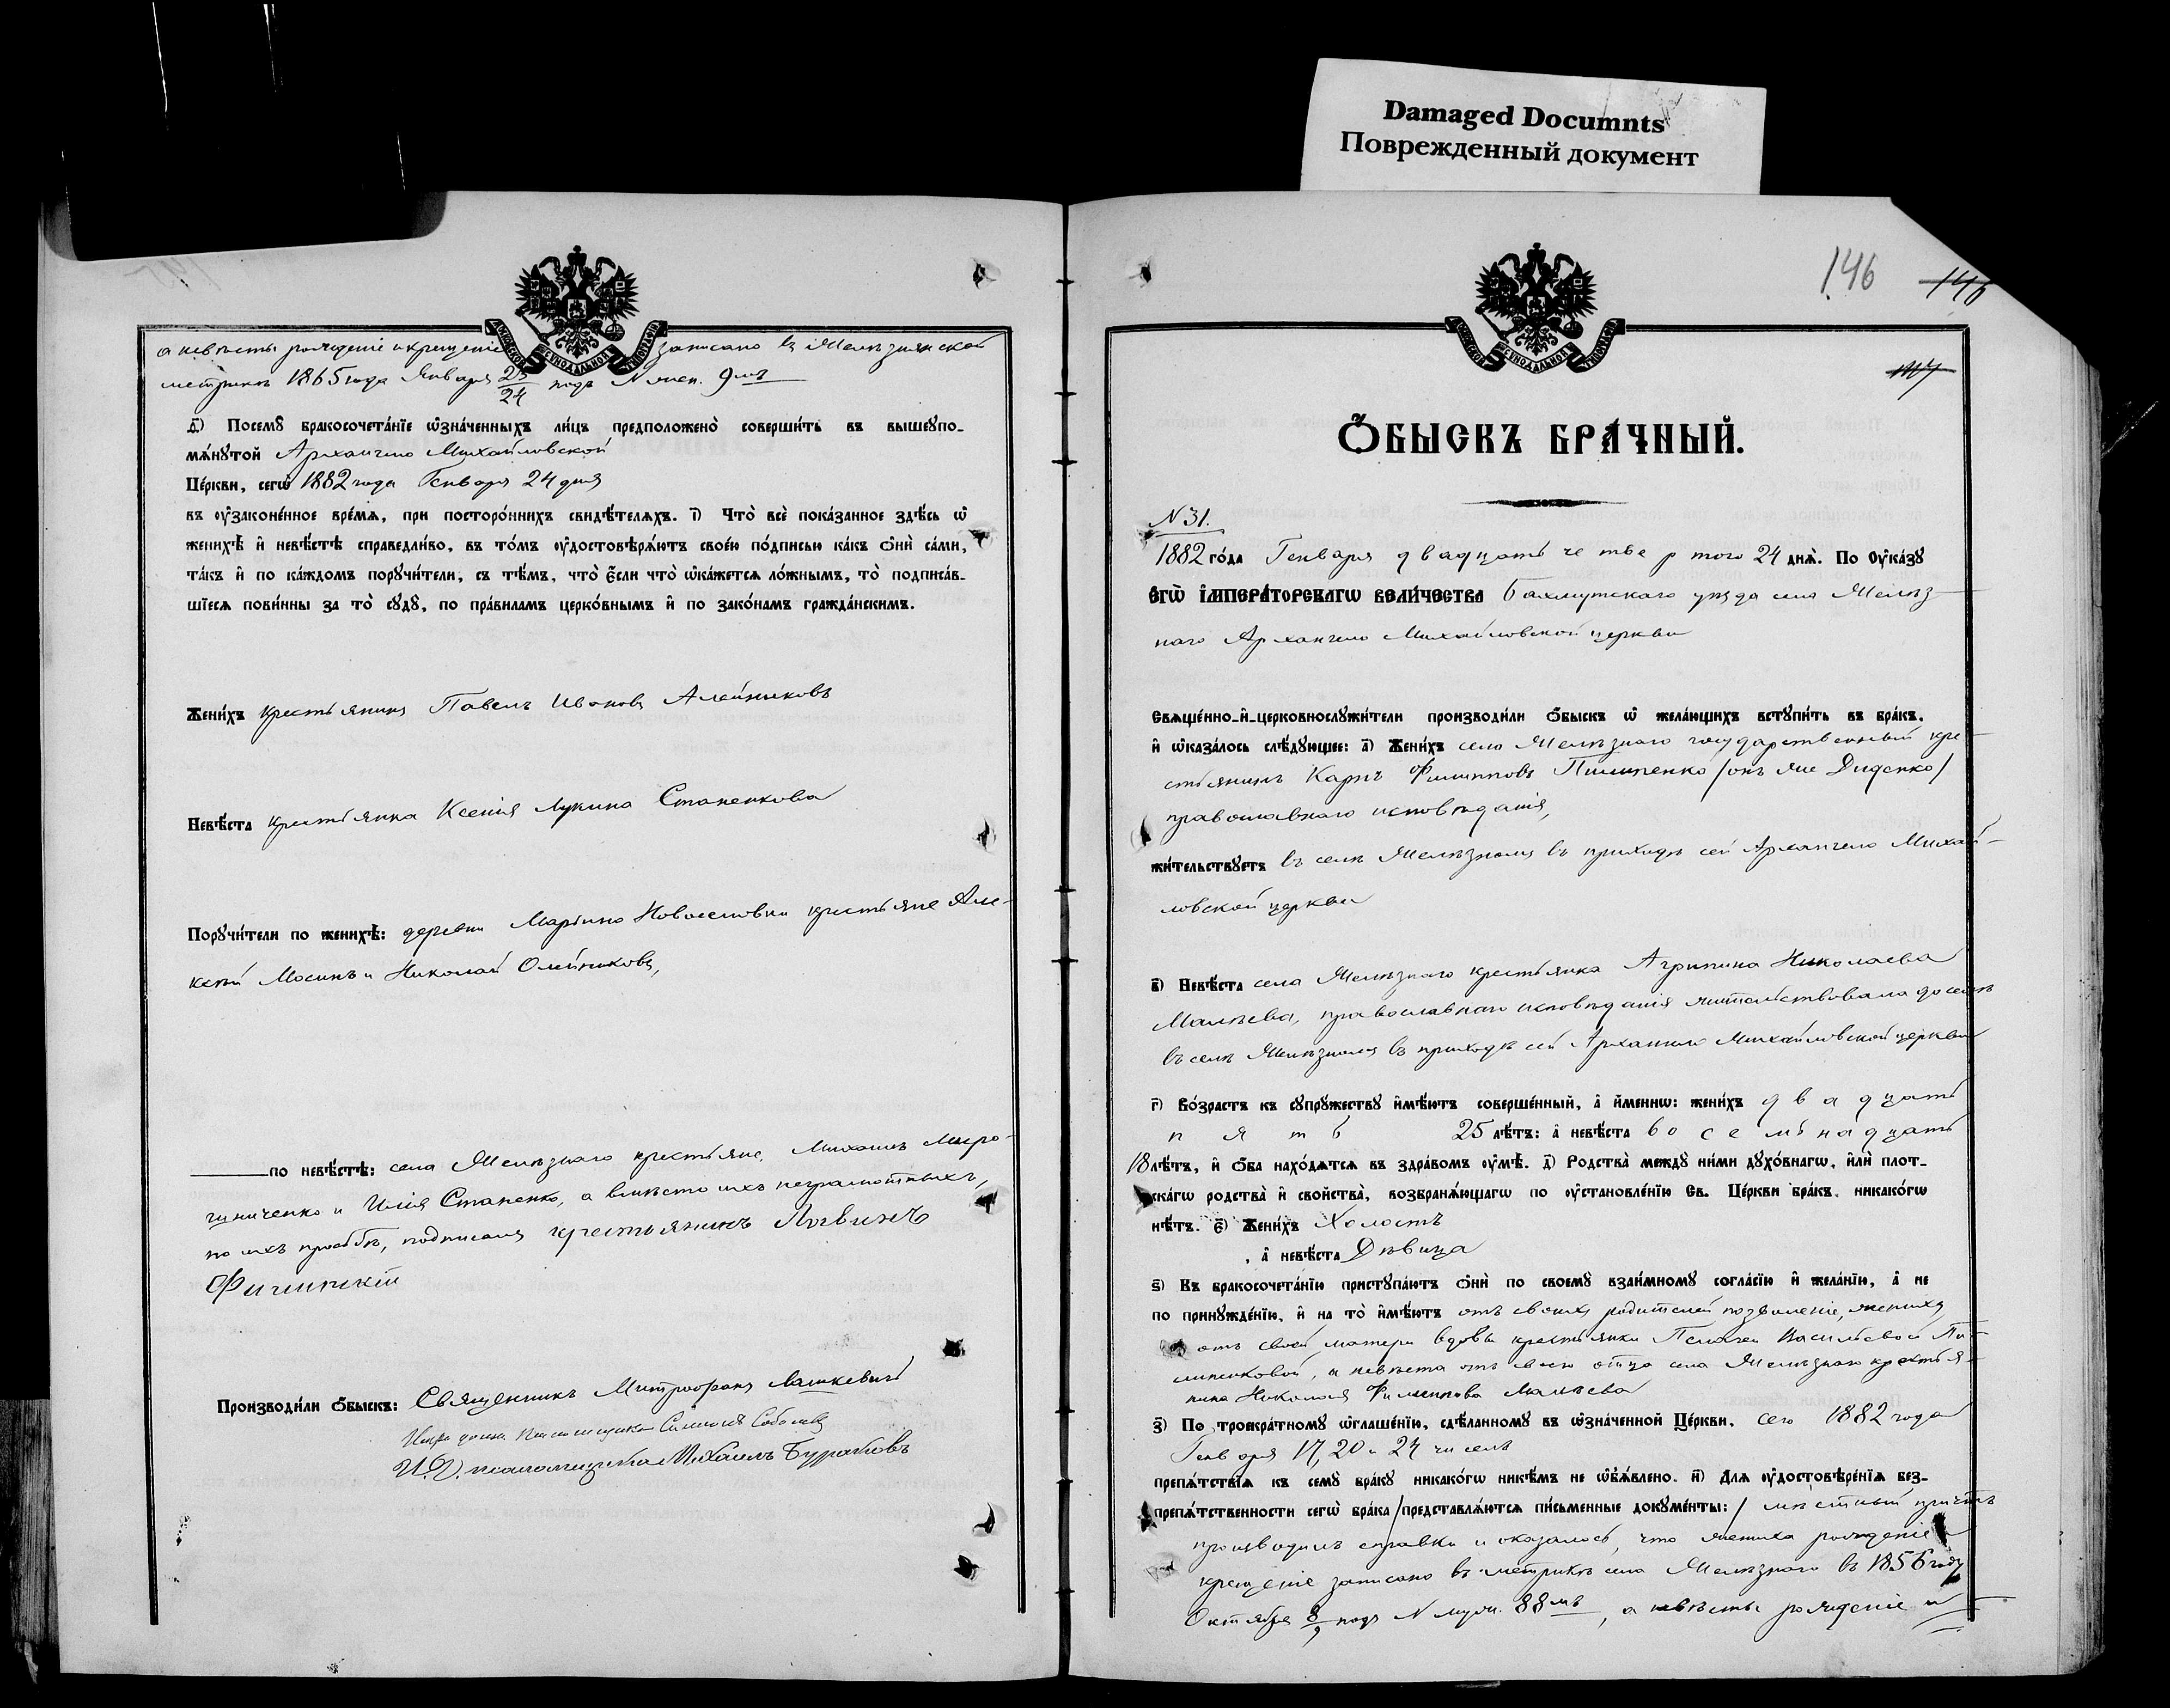 Damaged Documnts
Поврежденный документ
а невѣсты рожденіе и крещеніе записано въ Желѣзнянской
метрикѣ 1865 года Января 23/24 подъ N жен. 9мъ
д҃) Посемꙋ бракосочетанїе ѡзначенныхъ лицъ предположено совершить въ вышеꙋпо-
мѧнꙋтой Архангело Михайловской
Церкви, сегѡ 1882 года Генваря 24 дня
въ ꙋзаконенное времѧ, при постороннихъ свидѣтелѧхъ. і҃) Что все показанное здѣсь ѡ
женихѣ и невѣстѣ справедливо, въ томъ ꙋдостовѣрѧютъ своею подписью какъ ѻни сами,
такъ и по каждомъ порꙋчители, съ тѣмъ, что если что ѡкажетсѧ ложнымъ, то подписав-
шїесѧ повинны за то сꙋдꙋ, по правиламъ церковнымъ и по законамъ гражданскимъ.
Женихъ крестьянинъ Павелъ Ивановъ Алейниковъ
Невѣста крестьянка Ксенія Лукина Стапенкова
Порꙋчители по женихѣ: деревни Марьино Новоселовки крестьяне Але-
ксѣй Мосинъ и Николай Олейниковъ,
по невѣстѣ: села Желѣзнаго крестьяне, Михаилъ Миро-
шниченко и Илія Стапенко, а вмѣсто ихъ неграмотныхъ,
по ихъ просьбѣ, подписался крестьянинъ Логвинъ
Производили ѻбыскъ: Священникъ Митрофанъ Лашкевичъ
Псаломщикъ Соболевъ
И. Д. псаломщика Михаилъ Бураковъ
146 146
Ѻбыскъ брачный.
N 31.
1882 года Генваря двадцать четвертого 24 днѧ. По Оуказꙋ
Егѡ Императорскагѡ Величества Бахмутскаго уѣзда села Желѣз-
наго Архангело Михайловской церкви
Свѧщенно-и-церковнослꙋжители производили ѻбыскъ ѡ желающихъ встꙋпить въ бракъ,
и ѡказалось слѣдꙋющее: а҃) Женихъ села Желѣзнаго государственный кре-
стьянинъ Карпъ Филипповъ Пилипенко /онъ же Диденко/
православнаго исповѣданія,
жительствꙋетъ въ селѣ Желѣзномъ въ приходѣ сей Архангело Михай-
ловской церкви
в҃) Невѣста села Желѣзнаго крестьянка Агрипина Николаева
Малѣева, православнаго исповѣданія жительствовала доселѣ
въ селѣ Желѣзномъ въ приходѣ сей Архангело Михайловской церкви
г҃) Возрастъ къ сꙋпрꙋжествꙋ имѣютъ совершенный, а именнѡ: женихъ двадцать
пять 25 лѣтъ: а невѣста восемьнадцать
18 лѣтъ, и ѻба находѧтсѧ въ здравомъ ꙋмѣ. д҃) Родства междꙋ ними дꙋховнагѡ, или плот-
скагѡ родства и свойства, возбранѧющагѡ по ꙋстановленїю Св. Церкви бракъ, никакогѡ
нѣтъ. е҃) Женихъ Холостъ
, а невѣста Дѣвица
ѕ҃) Къ бракосочетанїю пристꙋпаютъ ѻни по своемꙋ взаимномꙋ согласїю и желанїю, а не
по принꙋжденїю, и на то имѣютъ отъ своихъ родителей позволеніе, жениха
отъ своей матери вдовы крестьянки Пелагеи Васильевой Пи-
липенковой, а невѣста отъ своего отца села Желѣзнаго крестья-
нина Николая Филиппова Малѣева
з҃) По троекратномꙋ ѡглашенїю, сдѣланномꙋ въ ѡзначенной Церкви, сего 1882 года
Генваря 17, 20 и 24 числѣ
препѧтствїѧ къ семꙋ бракꙋ никакогѡ никѣмъ не ѡбъѧвлено. и҃) Длѧ ꙋдостовѣренїѧ без-
препѧтственности сегѡ брака /представлѧютсѧ письменные докꙋменты:/ мѣстный причтъ
производилъ справки и оказалось, что жениха рожденіе и
крещеніе записано въ метрикѣ села Желѣзнаго въ 1856 году
Октября 8/9 подъ N муж. 88мъ, а невѣсты рожденіе и